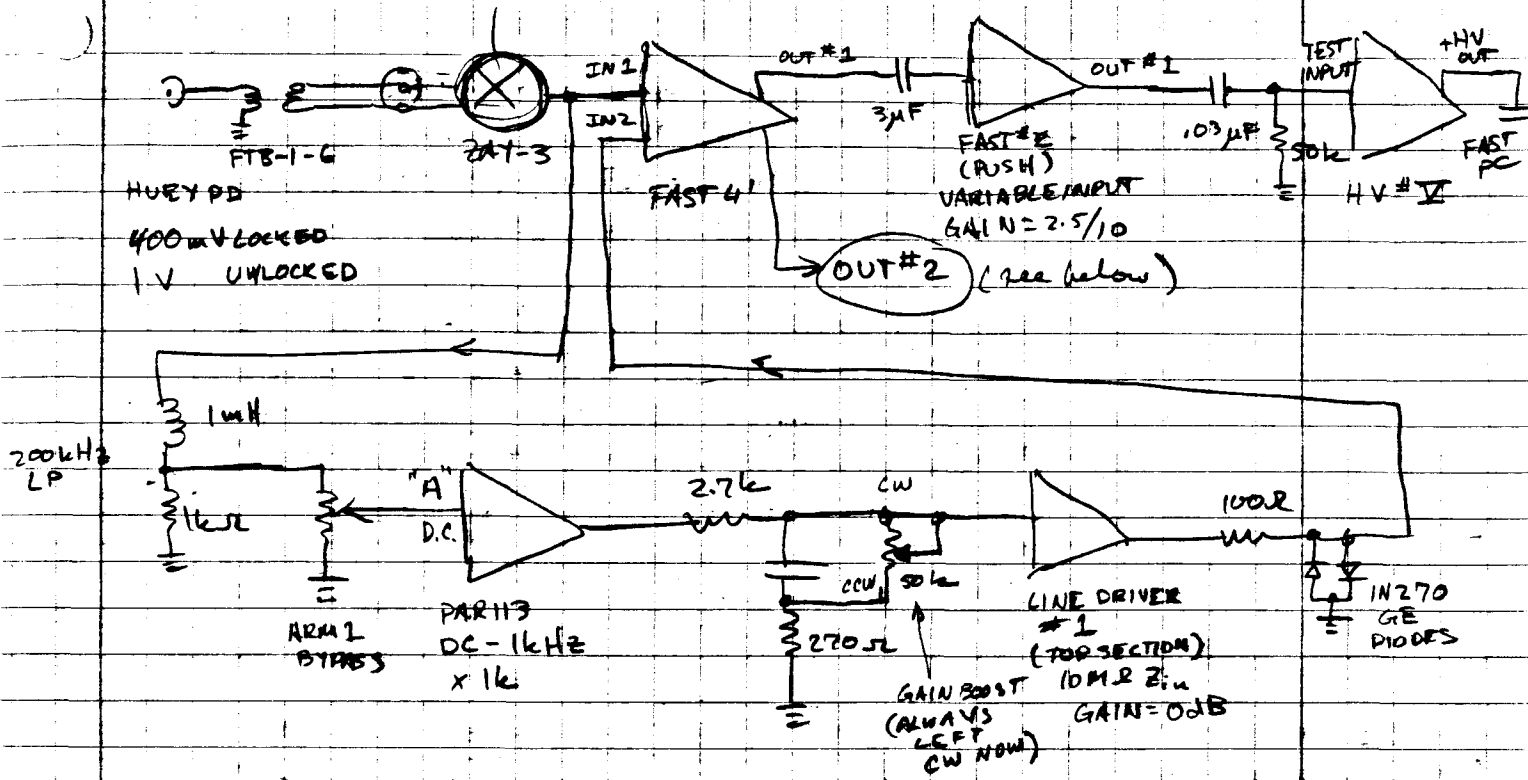 FTB-1-6
HUEY PD
400mV LOCKED
1V UNLOCKED
ZAY-3
IN 1
IN2
FAST 4'
OUT #1
3µF
OUT #2
(see below)
(PUSH)
VARIABLE INPUT
GAIN = 2.5/10
OUT #1
.03 µF
50k
TEST
INPUT
+HV
OUT
FAST
PC
1mH
200kHz
LP
1kΩ
ARM 1
BYPASS
"A"
D.C.
PAR113
DC - 1kHz
x 1k
2.7k
CW
CCW
50k
270Ω
GAIN BOOST
(ALWAYS
LEFT
CW NOW)
LINE DRIVER
#1
(TOP SECTION)
10MΩ Zin
GAIN = 0dB
100Ω
IN270
GE
DIODES